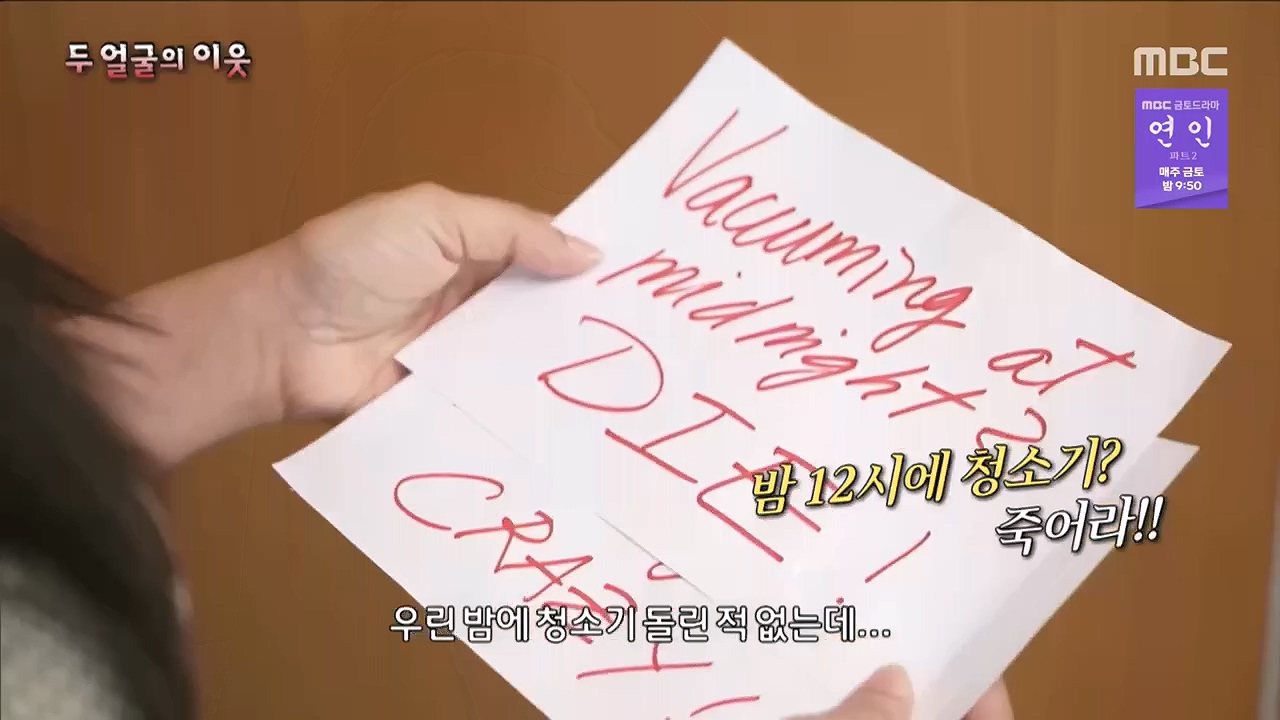 두 얼굴의 이웃
MBC
MBC 금토드라마
연인
파트2
매주 금토
밤 9:50
Vacuuming at
midnight?
DIE!
밤 12시에 청소기?
죽어라!!
우린 밤에 청소기 돌린 적 없는데...